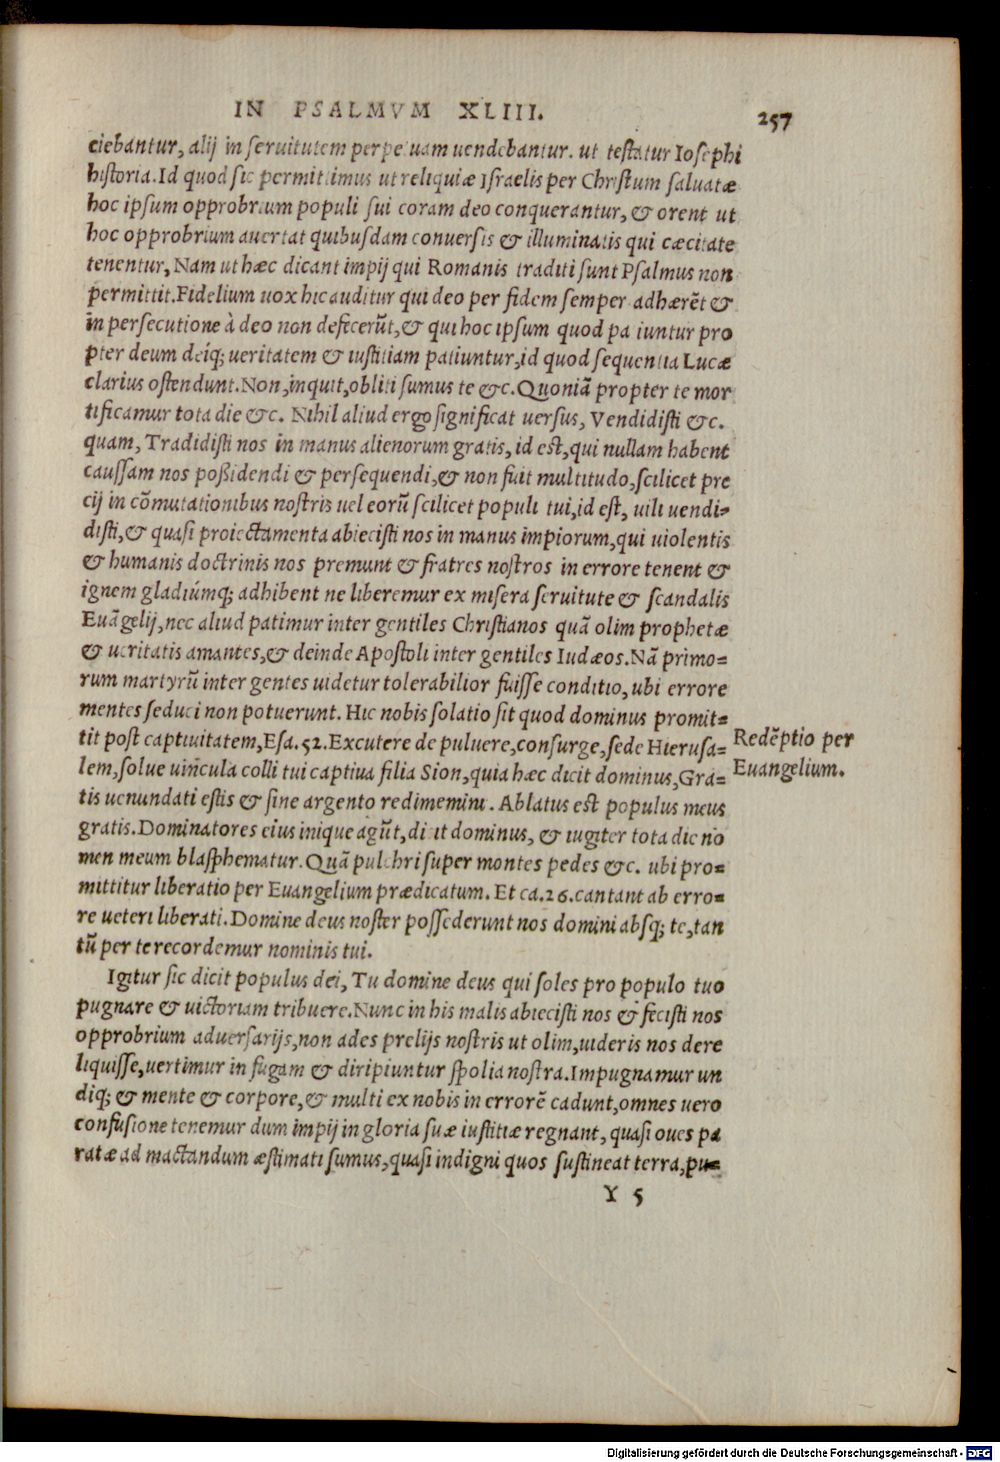 IN PSALMVM XLIII. 257
ciebantur, alij in seruitutem perpetuam uendebantur. ut testatur Iosephi
historia. Id quod sic permittimus ut reliquiæ Israelis per Christum saluatæ
hoc ipsum opprobrium populi sui coram deo conquerantur, & orent ut
hoc opprobrium auertat quibusdam conuersis & illuminatis qui cæcitate
tenentur, Nam ut hæc dicant impij qui Romanis traditi sunt Psalmus non
permittit. Fidelium uox hic auditur qui deo per fidem semper adhærẽt &
in persecutione à deo non defecerũt, & qui hoc ipsum quod patiuntur pro
pter deum deíq; ueritatem & iustitiam patiuntur, id quod sequentia Lucæ
clarius ostendunt. Non, inquit, obliti sumus te &c. Quoniã propter te mor
tificamur tota die &c. Nihil aliud ergo significat uersus, Vendidisti &c.
quam, Tradidisti nos in manus alienorum gratis, id est, qui nullam habent
caussam nos poßidendi & persequendi, & non fuit multitudo, scilicet pre
cij in cõmutationibus nostris uel eorũ scilicet populi tui, id est, uili uendi-
disti, & quasi proiectamenta abiecisti nos in manus impiorum, qui uiolentis
& humanis doctrinis nos premunt & fratres nostros in errore tenent &
ignem gladiúmq; adhibent ne liberemur ex misera seruitute & scandalis
Euãgelij, nec aliud patimur inter gentiles Christianos quã olim prophetæ
& ueritatis amantes, & deinde Apostoli inter gentiles Iudæos. Nã primo=
rum martyrũ inter gentes uidetur tolerabilior fuisse conditio, ubi errore
mentes seduci non potuerunt. Hic nobis solatio sit quod dominus promit=
tit post captiuitatem, Esa. 52. Excutere de puluere, consurge, sede Hierusa=
Redẽptio per
lem, solue uincula colli tui captiua filia Sion, quia hæc dicit dominus, Gra=
Euangelium.
tis uenundati estis & sine argento redimemini. Ablatus est populus meus
gratis. Dominatores eius inique agũt, dicit dominus, & iugiter tota die no
men meum blasphematur. Quã pulchri super montes pedes &c. ubi pro=
mittitur liberatio per Euangelium prædicatum. Et ca. 26. cantant ab erro=
re ueteri liberati. Domine deus noster possederunt nos domini absq; te, tan
tũ per te recordemur nominis tui.
Igitur sic dicit populus dei, Tu domine deus qui soles pro populo tuo
pugnare & uictoriam tribuere. Nunc in his malis abiecisti nos & fecisti nos
opprobrium aduersarijs, non ades prelijs nostris ut olim, uideris nos dere
liquisse, uertimur in fugam & diripiuntur spolia nostra. Impugnamur un
diq; & mente & corpore, & multi ex nobis in errorẽ cadunt, omnes uero
confusione tenemur dum impij in gloria suæ iustitiæ regnant, quasi oues pa
ratæ ad mactandum æstimati sumus, quasi indigni quos sustineat terra, pu=
Y 5
Digitalisierung gefördert durch die Deutsche Forschungsgemeinschaft - DFG